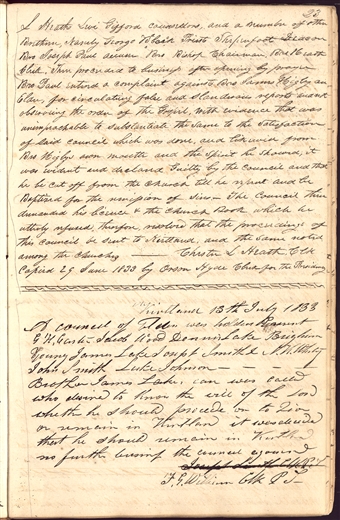 23
L Heath Levi Gifford councellors, and a number of other
Brethren, Namely George
Bro Joseph Paul accuser Bro Bishop Chairman Bro Heath
Clerk, Then proceeded to business after opening by prayer
Bro Paul entered a complaint against Bro James Higby an
Elder for circulating false and slanderous reports and not
observing the order of the Gospel, with evidence that was
unimpeachable to substantiate the same to the satisfaction
of said council which was done, and likewise from
Bro Higbys own mouth and the spirit he showed, it
was evident and declared Guilty by the council and that
he be cut off from the church till he repent and be
Baptized for the remission of Sins— The Council then
demanded his Licence & the Church Book which he
utterly refused, therefore resolved that the proceedings of
this council be sent to Kirtland, and the same noticed
among the churches — L Heath Clk
Copied 29 June 1833 by Orson Hyde Clerk for the Presidency
Kirtland 13th July 1833
A council of Elders was holden present
G H Carter Jacob Wood Dennis Lake Brigham
Young James Lake Joseph Smith N. K. Whitney
John Smith Luke Johnson — — —
Brother James Lake came was
who desired to know the will of the Lord
wheth he should procede on to Zion
or remain in Kirtland it was decided
that he should remain in Kirtland
no further business the council ajourned
F. G. Williams Clk P T—